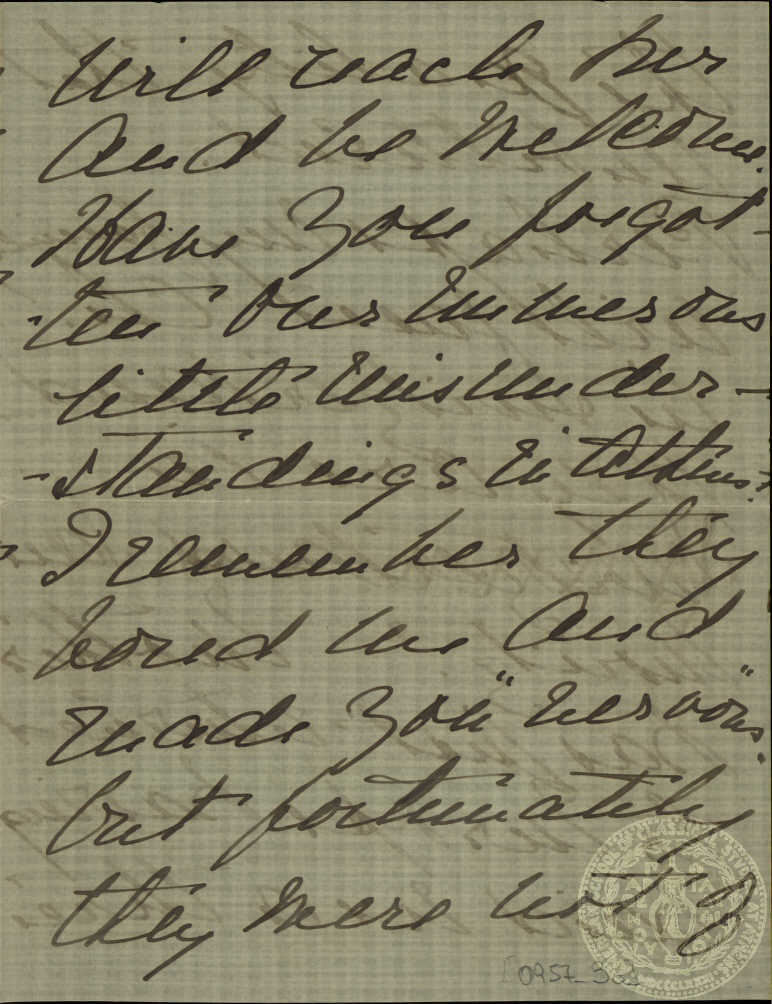 will reach her
and be welcome.
Have you forgot-
-ten our numerous
little misunder-
-standings in Athens?
I remember they
bored me and
made you "nervous".
but fortunately
they were not of
[0957_36]